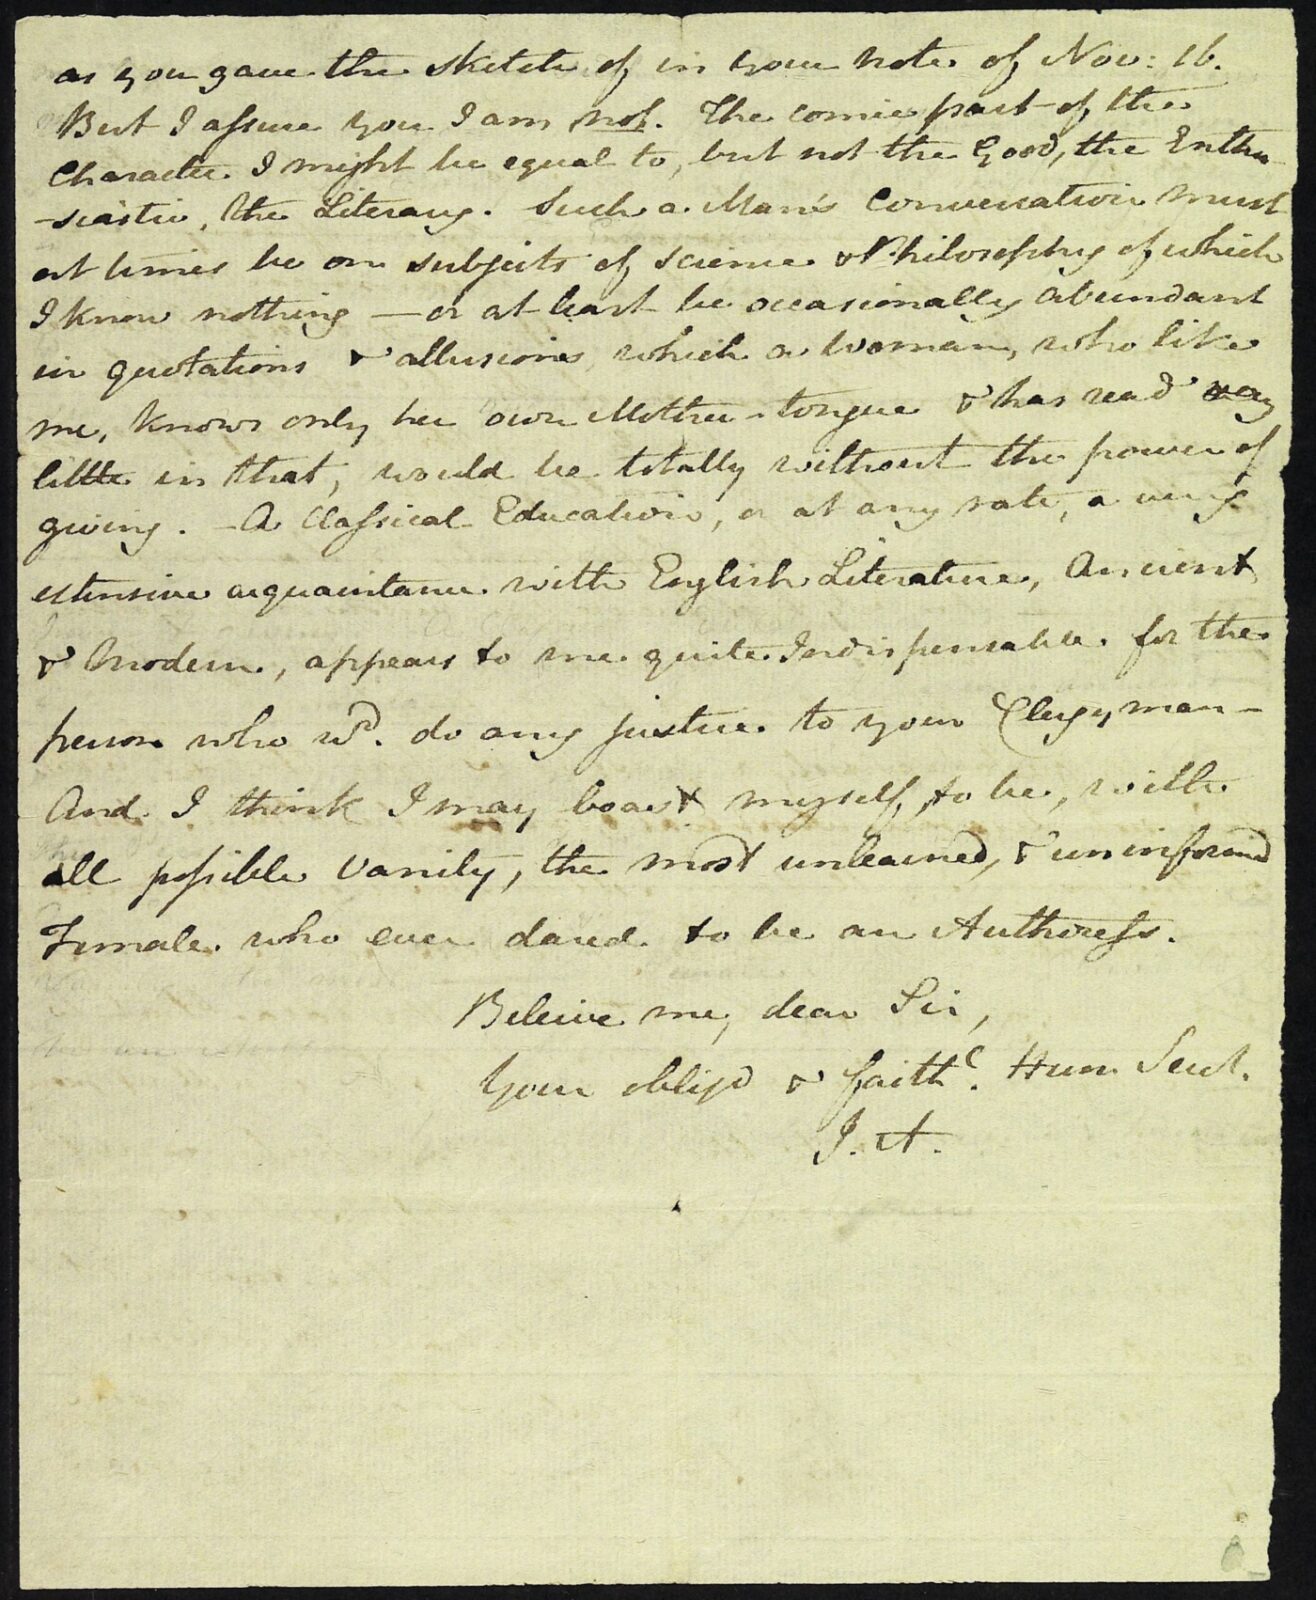 as you gave the sketch of in your note of Nov: 16.
But I assure you I am not. The comic part of the
Character I might be equal to, but not the Good, the Enthu
-siastic, the Literary. Such a Man's Conversation must
at times be on subjects of Science & Philosophy of which
I know nothing — or at least be occasionally abundant
in quotations & allusions which a Woman, who like
me, knows only her own Mother-tongue & has read very
little in that, would be totally without the power of
giving. — A Classical Education, or at any rate, a very
extensive acquaintance with English Literature, Ancient
& Modern, appears to me quite Indispensable for the
person who wd. do any justice to your Clergyman —
And I think I may boast myself to be, with
all possible Vanity, the most unlearned, & uninformed
Female who ever dared to be an Authoress.
Beleive me, dear Sir,
Your obligd & faithl. Hum Servt.
J. A.